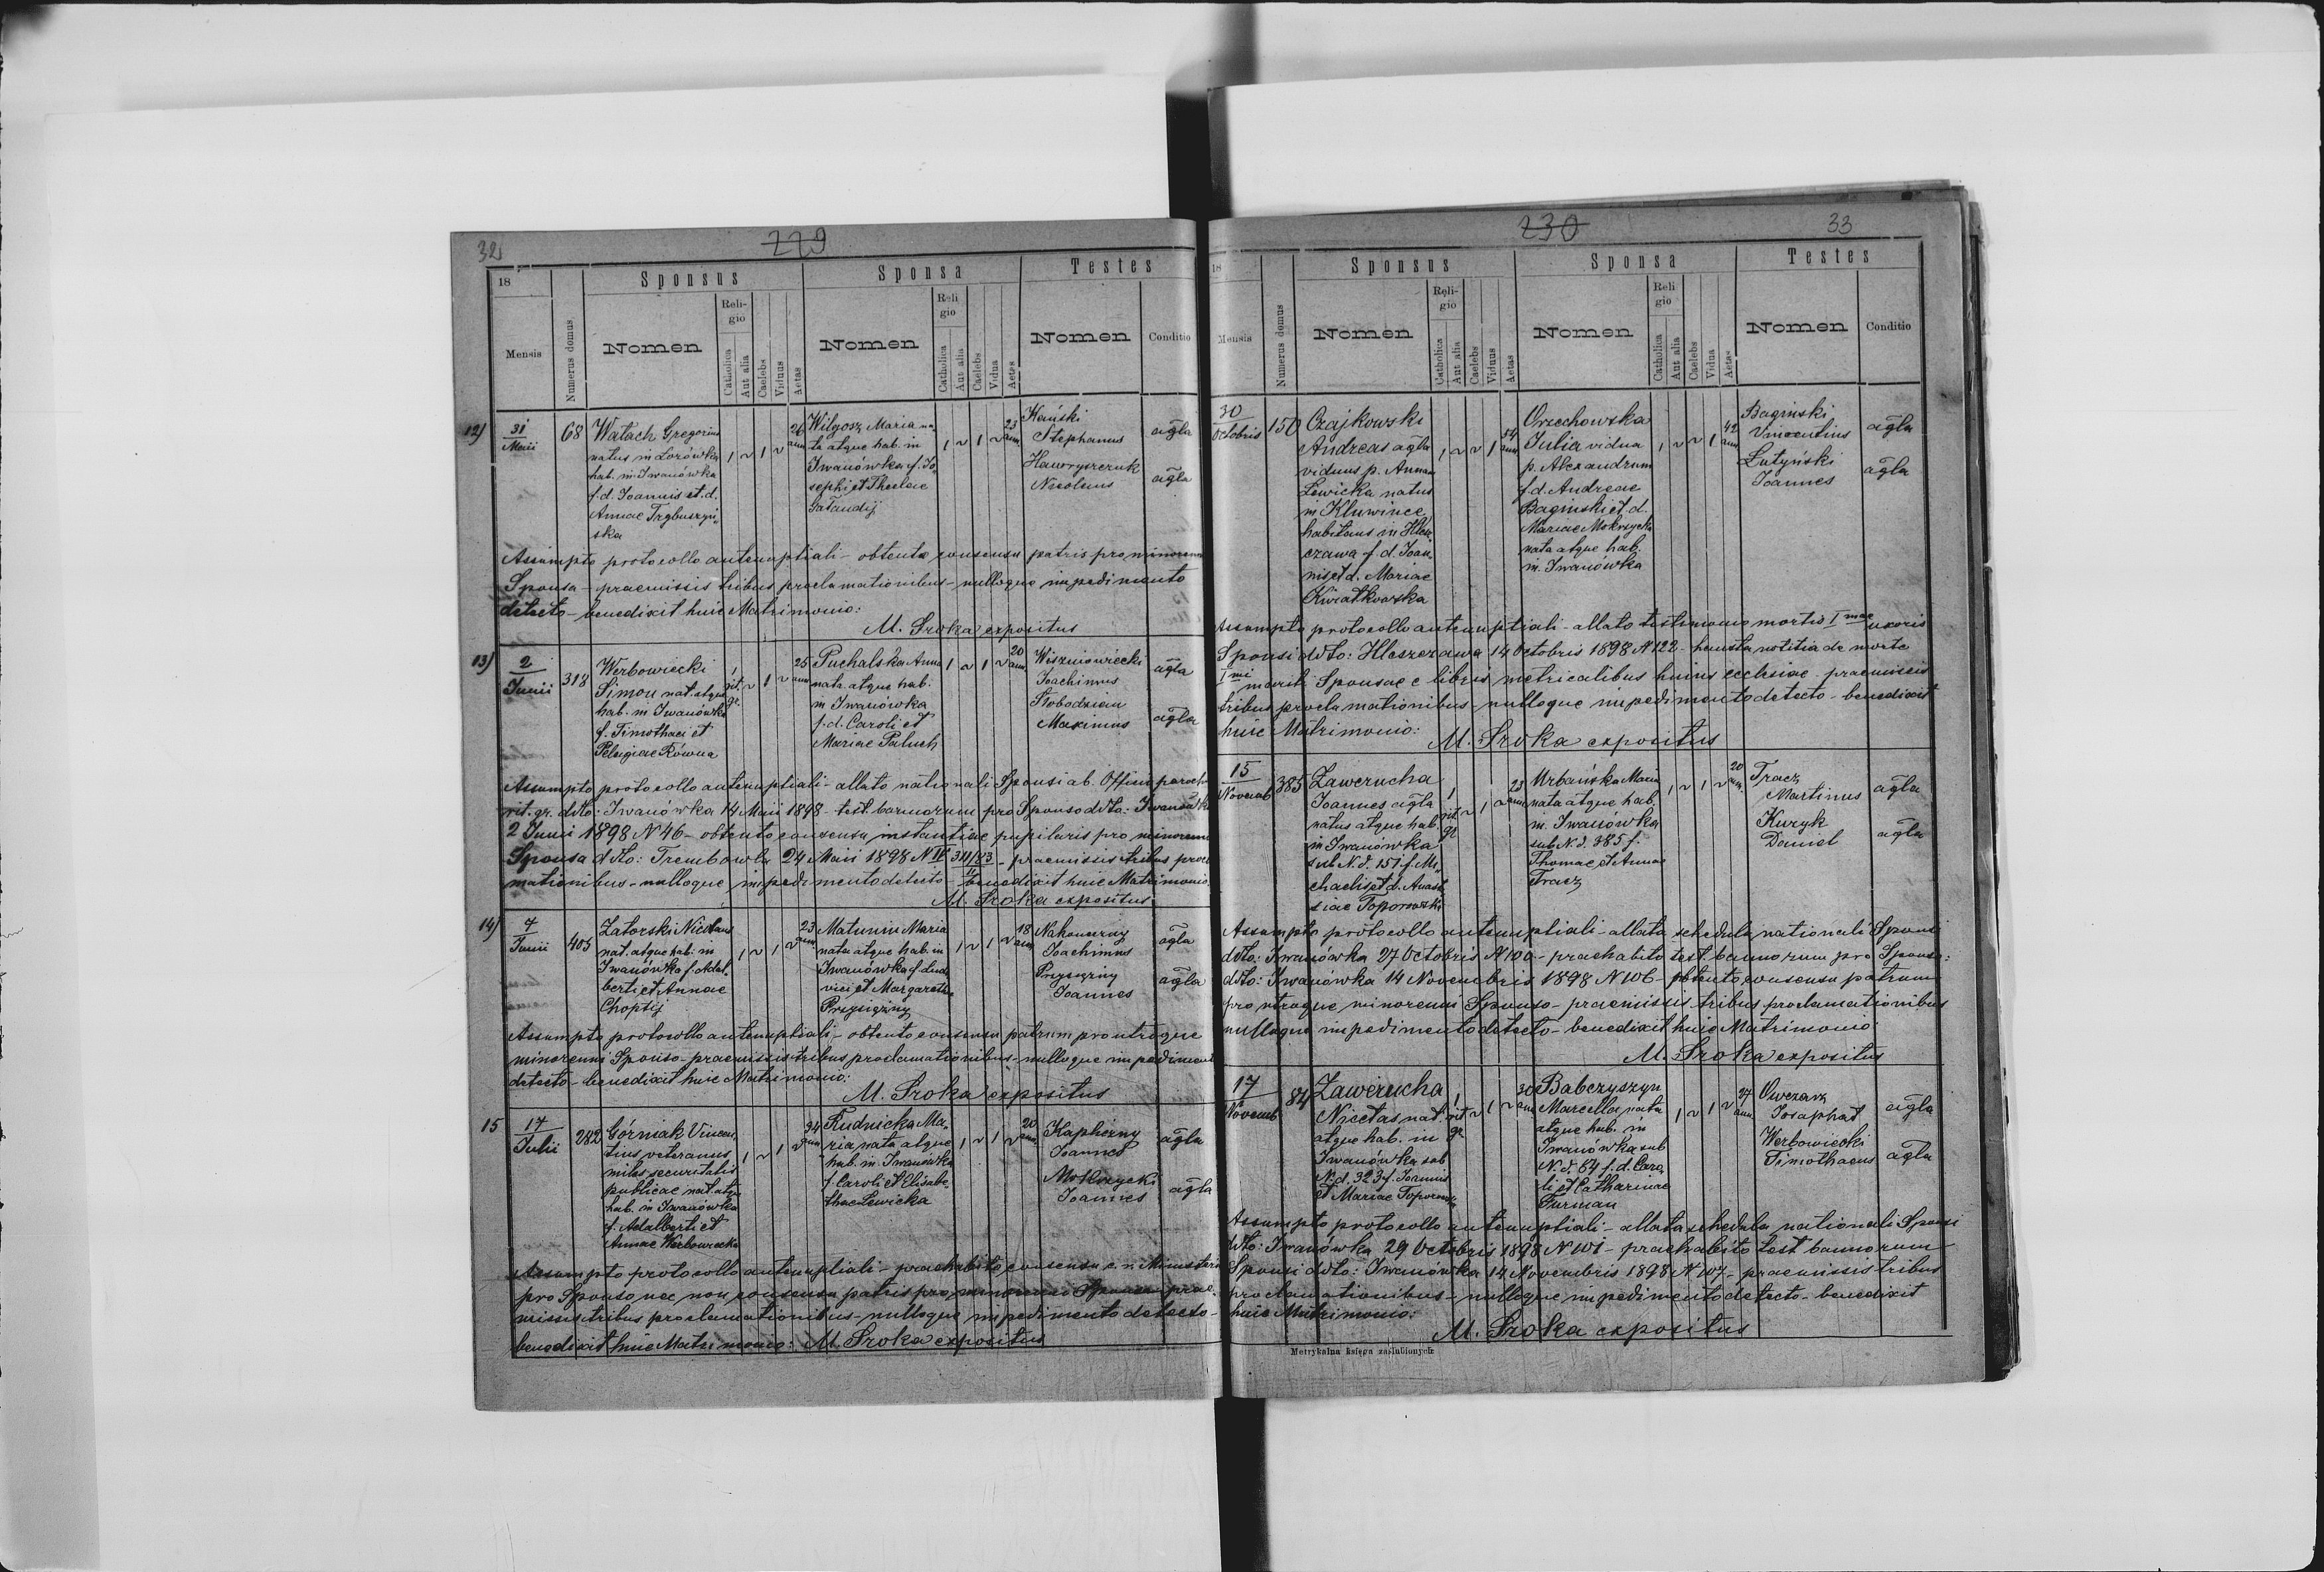 32
229
18
Sponsus
Sponsa
Testes
Mensis
Numerus domus
Nomen
Religio
Catholica
Aut alia
Caelebs
Viduus
Aetas
Nomen
Religio
Catholica
Aut alia
Caelebs
Vidua
Aetas
Nomen
Conditio
12)
31
Maii
68
Watach Gregorius
natus in Lozówka
hab. in Iwanówka
f. d. Joannis et d.
Annae Trybuszyń
ska
1 ~ 1 ~
26 ann
Wilgosz Maria na
ta atque hab. in
Iwanówka f. Jo
sephi et Theclae
Gałandij
1 ~ 1 ~
23 ann
Wański
Stephanus
Hawryszczuk
Nicolaus
agla
agla
Assumpto protocollo antenuptiali - obtento consensu patris pro minorenni
Sponsa - praemissis tribus proclamationibus - nulloque impedimento
detecto - benedixit huic Matrimonio:
M. Sroka expositus
13)
2
Junii
318
Werbowiecki
Simon nat. atque
hab. in Iwanówka
f. Timothaei et
Pelagiae Równa
1 rit. gr. ~ 1 ~
25 ann
Puchalska Anna
nata atque hab.
in Iwanówka
f. d. Caroli et
Mariae Paluch
1 ~ 1 ~
20 ann
Wiszniowiecki
Joachimus
Słobodzian
Maximus
agla
agla
Assumpto protocollo antenuptiali - allato nationali Sponsi ab. Officio paroch
rit. gr. ddto: Iwanówka 14 Maii 1898 - test. bannorum pro Sponso ddto: Iwanówka
2 Junii 1898 N 46 - obtento consensu instantiae pupilaris pro minorenni
Sponsa ddto: Trembowla 24 Maii 1898 N IV 311/83 - praemissis tribus procla
mationibus - nulloque impedimento detecto - benedixit huic Matrimonio
M. Sroka expositus
14)
7
Junii
405
Zatorski Nicolaus
nat. atque hab. in
Iwanówka f. Adal
berti et Annae
Choptij
1 ~ 1 ~
23 ann
Matunin Maria
nata atque hab. in
Iwanówka f. Ludo
vici et Margarethae
Przysiężny
1 ~ 1 ~
18 ann
Nahouczny
Joachimus
Przysiężny
Joannes
agla
agla
Assumpto protocollo antenuptiali - obtento consensu patrum pro utroque
minorenni Sponso - praemissis tribus proclamationibus - nulloque impedimen
detecto - benedixit huic Matrimonio:
M. Sroka expositus
15
17
Julii
282
Górniak Vincen
tius veteranus
miles securitatis
publicae nat. atque
hab. in Iwanówka
f. Adalberti et
Annae Werbowiecka
1 ~ 1 ~
34 ann
Rudnicka Ma
ria nata atque
hab. in Iwanówka
f. Caroli et Elisabe
thae Lewicka
1 ~ 1 ~
20 ann
Kaphiczny
Joannes
Mokrzycki
Joannes
agla
agla
Assumpto protocollo antenuptiali - praehabito consensu c. r. Ministerii
pro Sponso nec non consensu patris pro minorenni Sponsa - prae
missis tribus proclamationibus - nulloque impedimento detecto -
benedixit huic Matrimonio: M. Sroka expositus
230
33
18
Sponsus
Sponsa
Testes
Mensis
Numerus domus
Nomen
Religio
Catholica
Aut alia
Caelebs
Viduus
Aetas
Nomen
Religio
Catholica
Aut alia
Caelebs
Vidua
Aetas
Nomen
Conditio
30
Octobris
150
Czajkowski
Andreas agla
viduus p. Annam
Lewicka natus
in Kluwince
habitans in Hlesz
czawa f. d. Joan
nis et d. Mariae
Kwiatkowska
1 ~ ~ 1
54 ann
Orzechowska
Julia vidua
p. Alexandrum
f. d. Andreae
Baginski et d.
Mariae Mokrzycka
nata atque hab.
in Iwanówka
1 ~ ~ 1
42 ann
Baginski
Vincentius
Lutyński
Joannes
agla
agla
Assumpto protocollo antenuptiali - allato testimonio mortis I mae uxoris
Sponsi ddto: Hleszczawa 14 Octobris 1898 N 122 - hausta notitia de morte
I mi mariti Sponsae e libris metricalibus huius ecclesiae - praemissis
tribus proclamationibus - nulloque impedimento detecto - benedixit
huic Matrimonio:
M. Sroka expositus
15
Novemb
385
Zawerucha
Joannes agla
natus atque hab.
in Iwanówka
sub N. d. 151 f. Mi
chaelis et d. Anasta
siae Toporowski
1 rit gr ~ 1 ~
23 ann
Urbańska Maria
nata atque hab.
in Iwanówka
sub N. d. 385 f.
Thomae et Annae
Tracz
1 ~ 1 ~
20 ann.
Tracz
Martinus
Kuryk
Daniel
agla
agla
Assumpto protocollo antenuptiali - allata schedula nationali Sponsi
ddto: Iwanówka 27 Octobris N 100 - praehabito test. bannorum pro Sponso:
ddto: Iwanówka 14 Novembris 1898 N 106 - obtento consensu patrum
pro utroque minorenni Sponso - praemissis tribus proclamationibus
nulloque impedimento detecto - benedixit huic Matrimonio
M. Sroka expositus
17
Novemb
84
Zawerucha
Nicetas nat.
atque hab. in
Iwanówka sub
N. d. 323 f. Joannis
et Mariae Toporowska
1 rit gr ~ 1 ~
30 ann
Babczyszyn
Marcella nata
atque hab. in
Iwanówka sub
N. d. 84 f. d. Caro
li et Catharinae
Furman
1 ~ 1 ~
27 ann.
Owczarz
Josaphat
Werbowiecki
Timothaeus
agla
agla
Assumpto protocollo antenuptiali - allata schedula nationali Sponsi
ddto: Iwanówka 29 Octobris 1898 N 101 - praehabito test bannorum
Sponsi ddto: Iwanówka 14 Novembris 1898 N 107 - praemissis tribus
proclamationibus - nulloque impedimento detecto - benedixit
huic Matrimonio:
M. Sroka expositus
Metrykalna księga zaślubionych